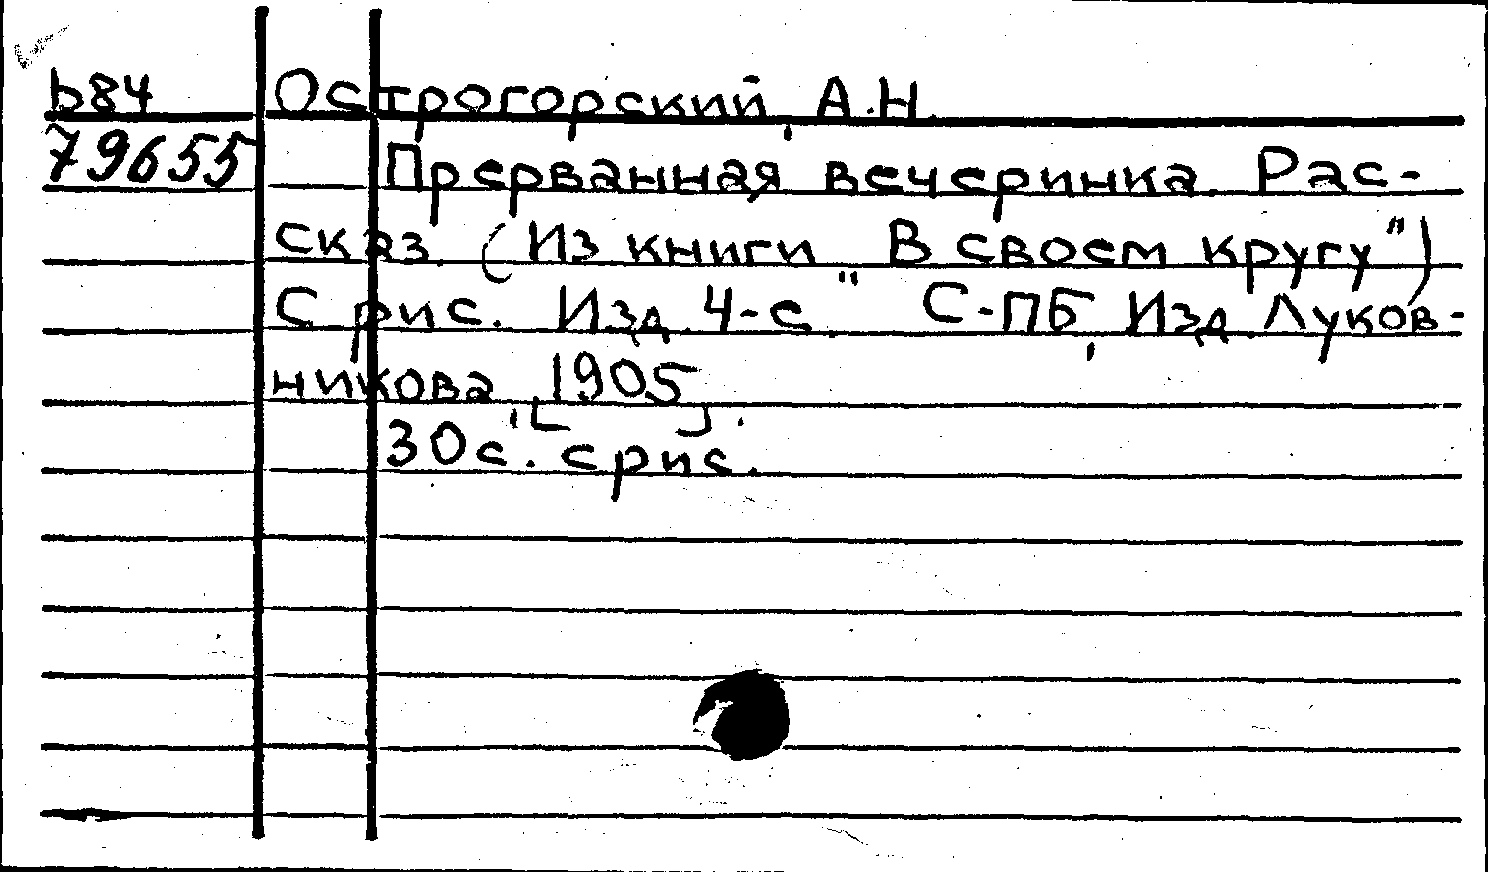 Ь84 Острогорский, А.Н.
79655 Прерванная вечеринка. Рас-
сказ. (Из книги „В своем кругу")
С рис. Изд. 4-е. С-ПБ, Изд. Луков-
никова, [1905].
30с. с рис.